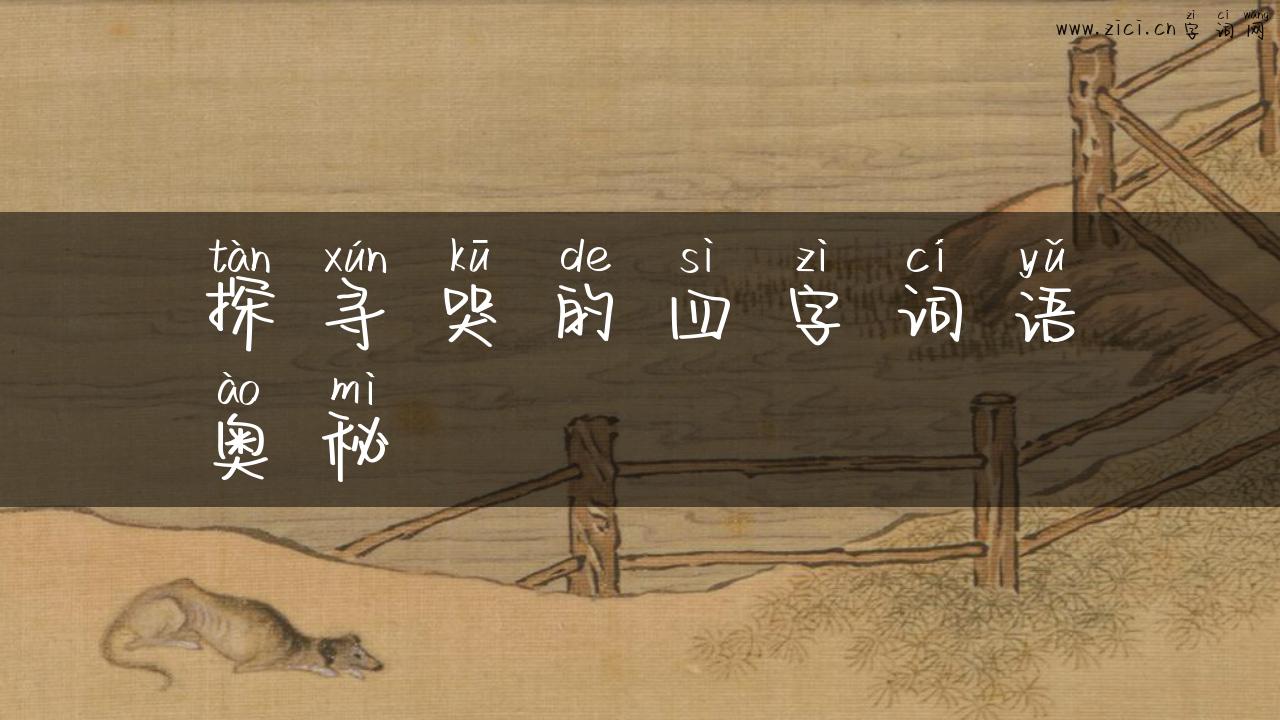 zì cí wǎng
www.zici.cn字词网
tàn xún kū de sì zì cí yǔ
探寻哭的四字词语
ào mì
奥秘